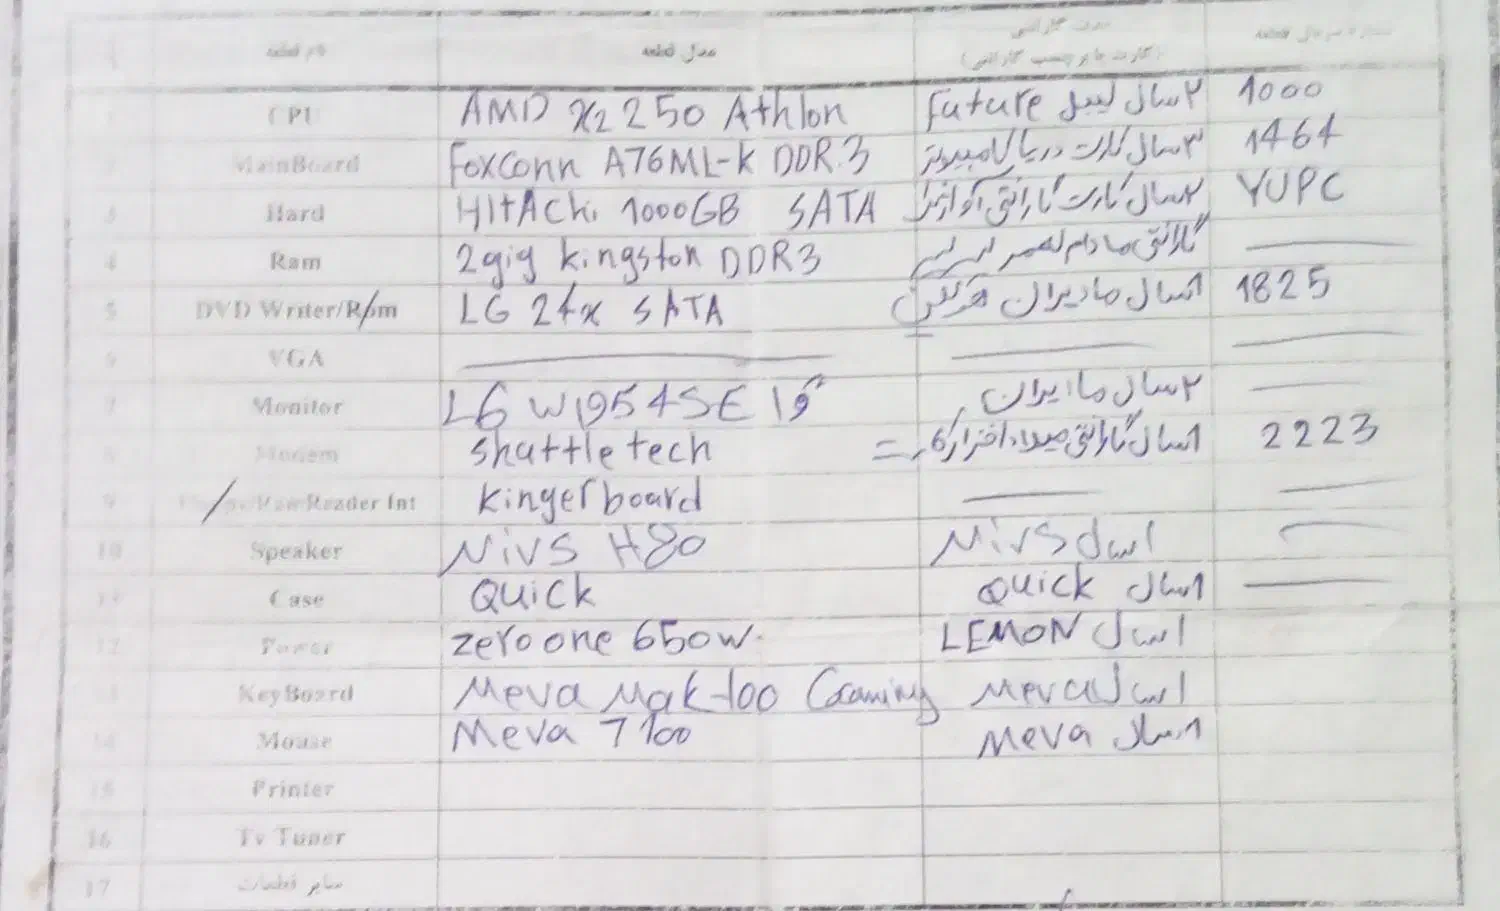 نام قطعه مدل قطعه مدت گارانتی (کارت یا برچسب گارانتی) شماره سریال قطعه
1 CPU AMD X2 250 Athlon ۲ سال لیبل Future 1000
2 MainBoard Foxconn A76ML-K DDR3 ۳ سال کارت دریا کامپیوتر 1464
3 Hard HITACHi 1000GB SATA ۲ سال کارت گارانتی آواژنگ YUPC
4 Ram 2gig kingston DDR3 گارانتی مادام العمر
5 DVD Writer/Rom LG 24x SATA ۱ سال مادیران 1825
6 VGA
7 Monitor LG W1954SE ۲ سال ماایران
8 Modem shuttle tech ۱ سال گارانتی 2223
9 Reader Int kinger board
10 Speaker NiVS H80 ۱ سال NiVS
11 Case Quick ۱ سال Quick
12 Power zero one 650w ۱ سال LEMON
13 KeyBoard Meva Mak-100 Gaming ۱ سال Meva
14 Mouse Meva 7100 ۱ سال Meva
15 Printer
16 Tv Tuner
17 سایر قطعات